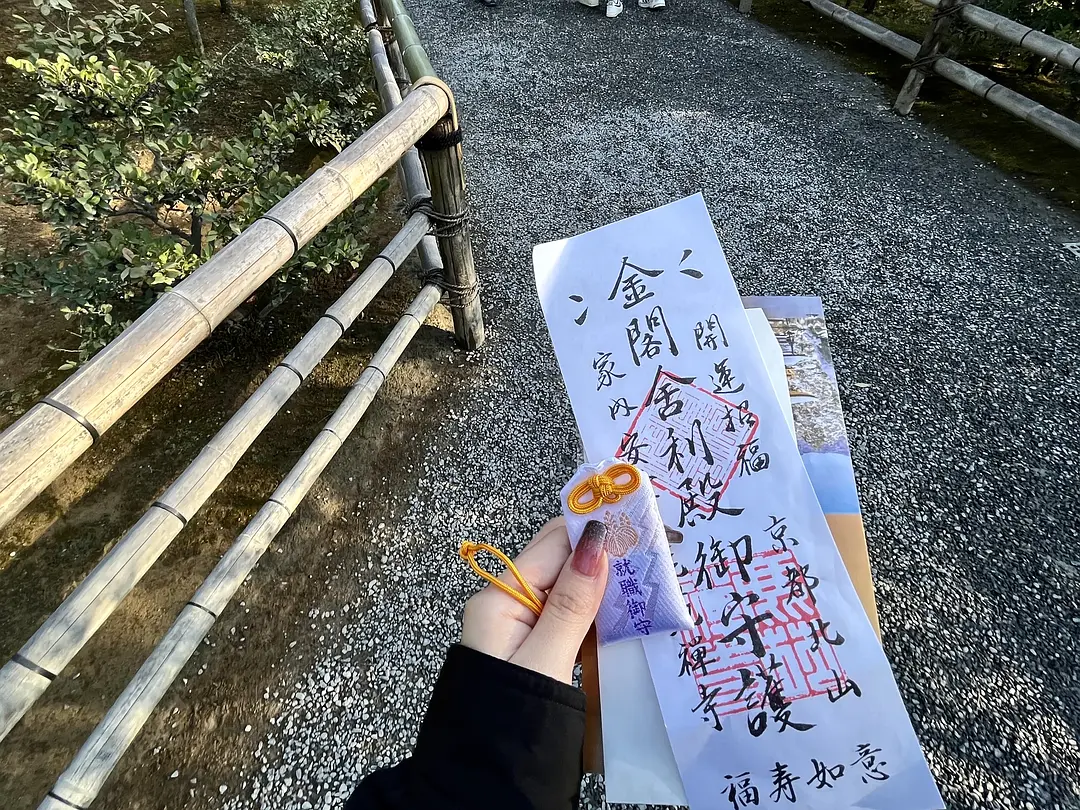 開運招福
金閣舎利殿御守護
家内安
京都北山
禅寺
福寿如意
就職御守